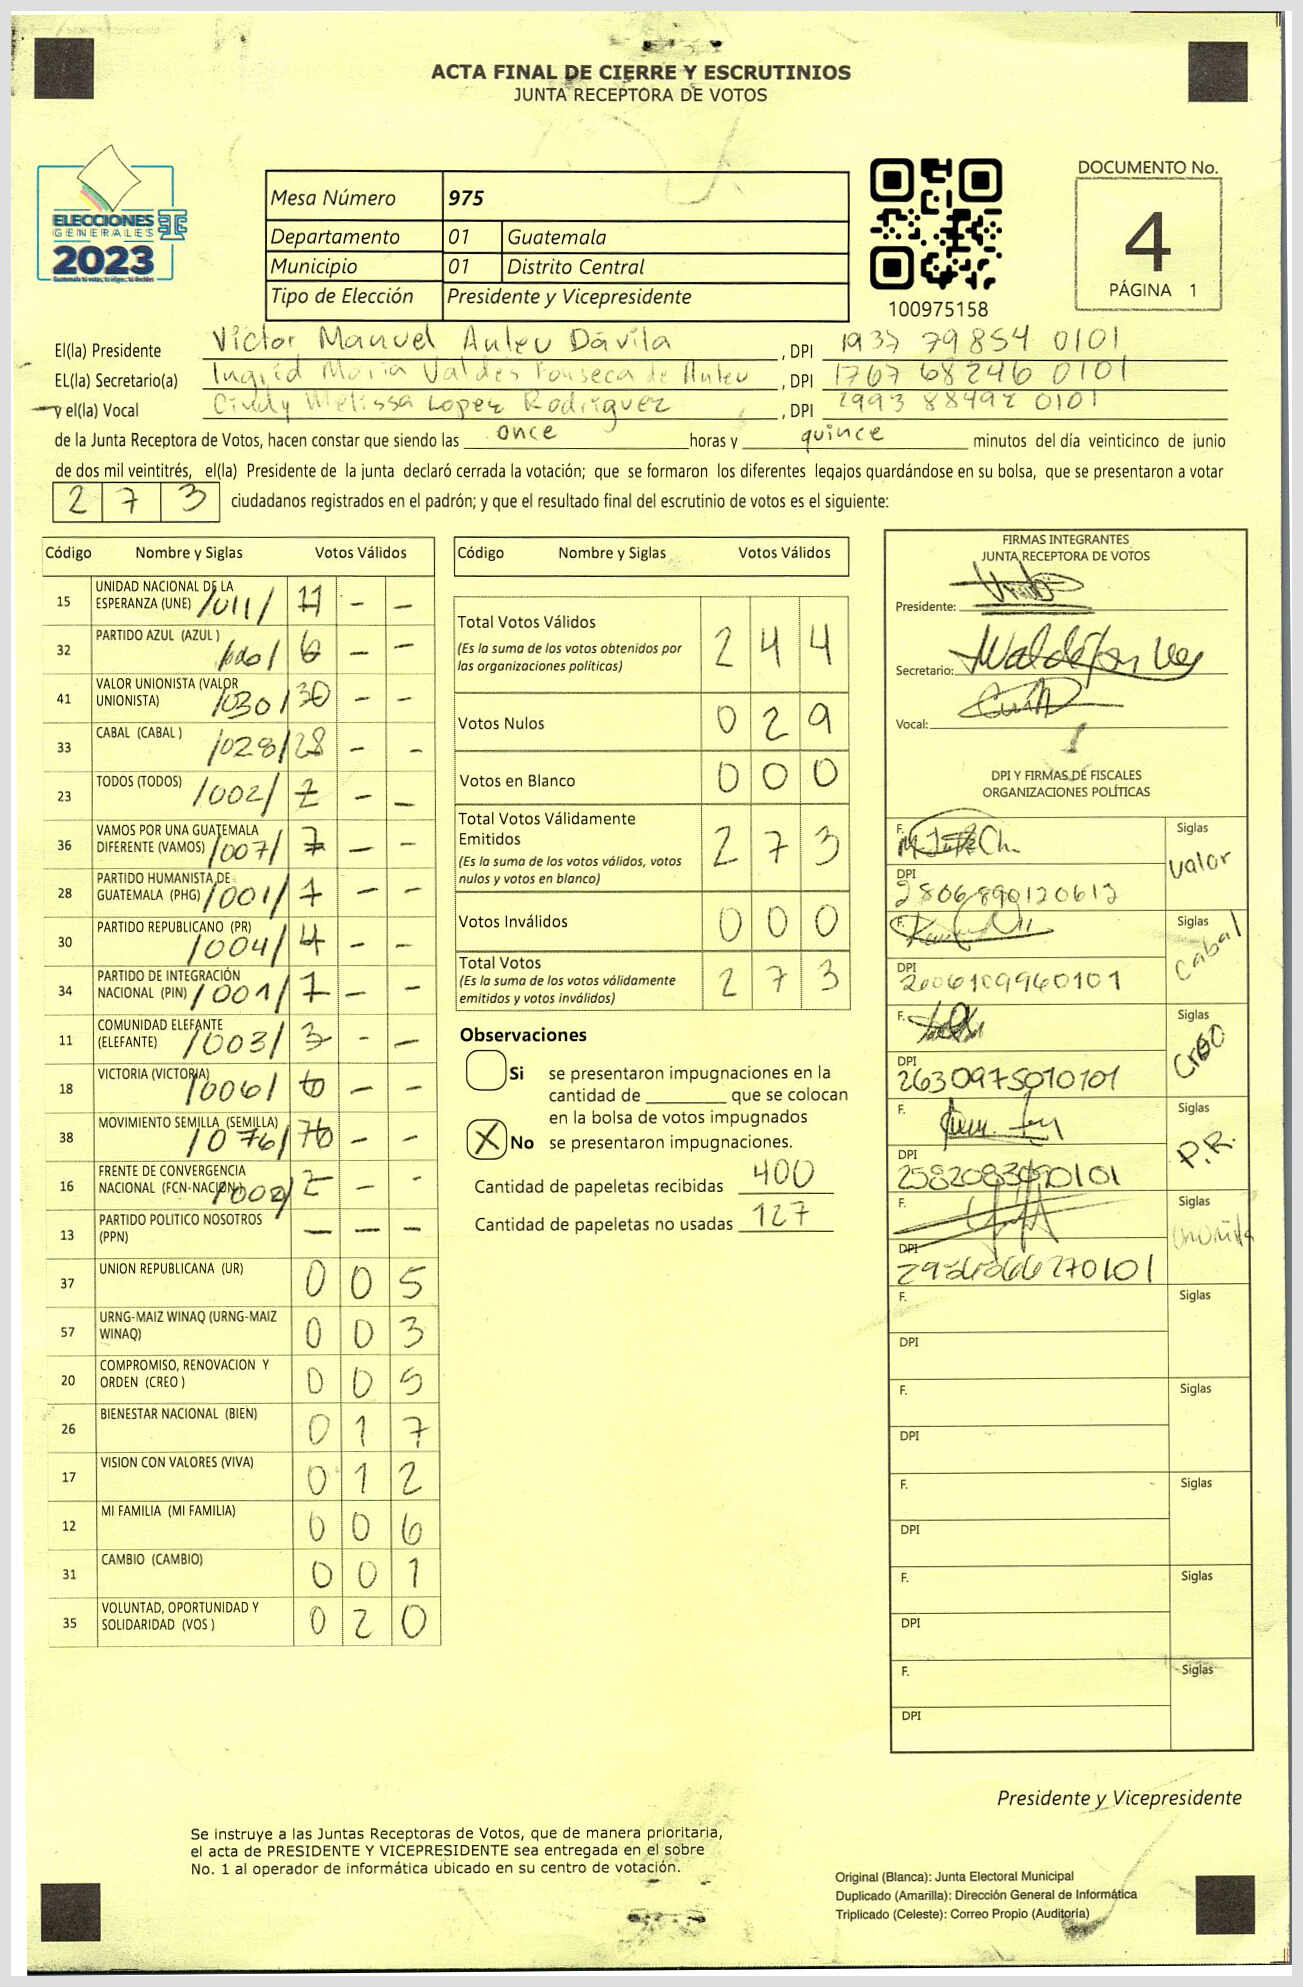 ACTA FINAL DE CIERRE Y ESCRUTINIOS
JUNTA RECEPTORA DE VOTOS
ELECCIONES
GENERALES
2023
Mesa Número 975
Departamento 01 Guatemala
Municipio 01 Distrito Central
Tipo de Elección Presidente y Vicepresidente
100975158
DOCUMENTO No.
4
PÁGINA 1
El(la) Presidente Victor Manuel Anleu Dávila , DPI 1937 79854 0101
EL(la) Secretario(a) Ingrid Maria Valdes Fonseca de Anleu , DPI 1767 68246 0101
y el(la) Vocal Cindy Melissa Lopez Rodriguez , DPI 2993 88492 0101
de la Junta Receptora de Votos, hacen constar que siendo las once horas y quince minutos del día veinticinco de junio
de dos mil veintitrés, el(la) Presidente de la junta declaró cerrada la votación; que se formaron los diferentes legajos guardándose en su bolsa, que se presentaron a votar
2 7 3 ciudadanos registrados en el padrón; y que el resultado final del escrutinio de votos es el siguiente:
Código Nombre y Siglas Votos Válidos
15 UNIDAD NACIONAL DE LA
ESPERANZA (UNE) /011/ 11 - -
32 PARTIDO AZUL (AZUL )
/006/ 6 - -
41 VALOR UNIONISTA (VALOR
UNIONISTA) /030/ 30 - -
33 CABAL (CABAL )
/028/ 28 - -
23 TODOS (TODOS) /002/ 2 - -
36 VAMOS POR UNA GUATEMALA
DIFERENTE (VAMOS) /007/ 7 - -
28 PARTIDO HUMANISTA DE
GUATEMALA (PHG) /001/ 1 - -
30 PARTIDO REPUBLICANO (PR)
/004/ 4 - -
34 PARTIDO DE INTEGRACIÓN
NACIONAL (PIN) /001/ 1 - -
11 COMUNIDAD ELEFANTE
(ELEFANTE) /003/ 3 - -
18 VICTORIA (VICTORIA)
/006/ 6 - -
38 MOVIMIENTO SEMILLA (SEMILLA)
/076/ 76 - -
16 FRENTE DE CONVERGENCIA
NACIONAL (FCN-NACION) /002/ 2 - -
13 PARTIDO POLITICO NOSOTROS
(PPN) - - -
37 UNION REPUBLICANA (UR) 0 0 5
57 URNG-MAIZ WINAQ (URNG-MAIZ
WINAQ) 0 0 3
20 COMPROMISO, RENOVACION Y
ORDEN (CREO ) 0 0 5
26 BIENESTAR NACIONAL (BIEN) 0 1 7
17 VISION CON VALORES (VIVA) 0 1 2
12 MI FAMILIA (MI FAMILIA) 0 0 6
31 CAMBIO (CAMBIO) 0 0 1
35 VOLUNTAD, OPORTUNIDAD Y
SOLIDARIDAD (VOS ) 0 2 0
Código Nombre y Siglas Votos Válidos
Total Votos Válidos 2 4 4
(Es la suma de los votos obtenidos por
las organizaciones políticas)
Votos Nulos 0 2 9
Votos en Blanco 0 0 0
Total Votos Válidamente
Emitidos 2 7 3
(Es la suma de los votos válidos, votos
nulos y votos en blanco)
Votos Inválidos 0 0 0
Total Votos 2 7 3
(Es la suma de los votos válidamente
emitidos y votos inválidos)
Observaciones
Si se presentaron impugnaciones en la
cantidad de ________ que se colocan
en la bolsa de votos impugnados
X No se presentaron impugnaciones.
Cantidad de papeletas recibidas 400
Cantidad de papeletas no usadas 127
FIRMAS INTEGRANTES
JUNTA RECEPTORA DE VOTOS
Presidente:
Secretario:
Vocal:
DPI Y FIRMAS DE FISCALES
ORGANIZACIONES POLÍTICAS
F. Siglas
Valor
DPI
2806890120612
F. Siglas
Cabal
DPI
2006109960101
F. Siglas
Creo
DPI
2630975010101
F. Siglas
P.R.
DPI
2582083090101
F. Siglas
DPI
F. Siglas
DPI
F. Siglas
DPI
F. Siglas
DPI
F. Siglas
DPI
F. Siglas
DPI
Presidente y Vicepresidente
Se instruye a las Juntas Receptoras de Votos, que de manera prioritaria,
el acta de PRESIDENTE Y VICEPRESIDENTE sea entregada en el sobre
No. 1 al operador de informática ubicado en su centro de votación.
Original (Blanca): Junta Electoral Municipal
Duplicado (Amarilla): Dirección General de Informática
Triplicado (Celeste): Correo Propio (Auditoría)